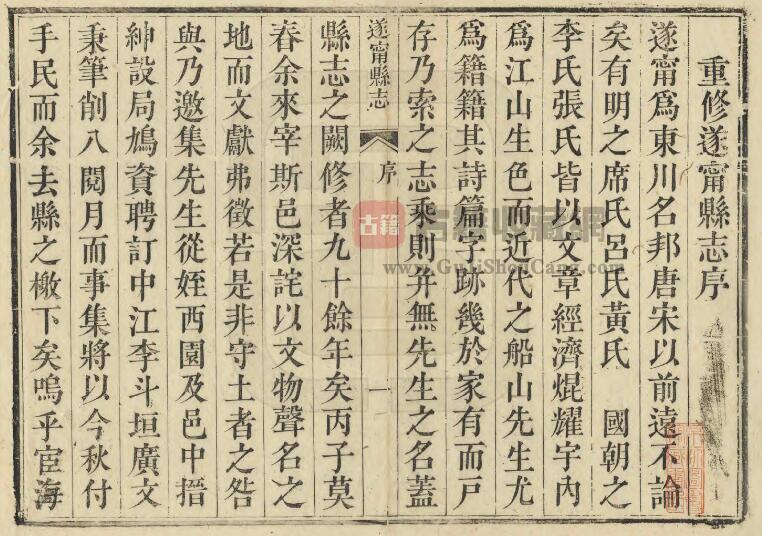 重修遂甯縣志序
遂甯爲東川名邦唐宋以前遠不論
矣有明之席氏呂氏黃氏 國朝之
李氏張氏皆以文章經濟焜耀宇內
爲江山生色而近代之船山先生尤
爲籍籍其詩篇字跡幾於家有而戶
存乃索之志乘則并無先生之名蓋
遂甯縣志 序 一
縣志之闕修者九十餘年矣丙子莫
春余來宰斯邑深詫以文物聲名之
地而文獻弗徵若是非守土者之咎
與乃邀集先生從姪西園及邑中搢
紳設局鳩資聘訂中江李斗垣廣文
秉筆削八閱月而事集將以今秋付
手民而余去縣之檄下矣嗚乎宦海
古籍
www.GuJiShouCang.com